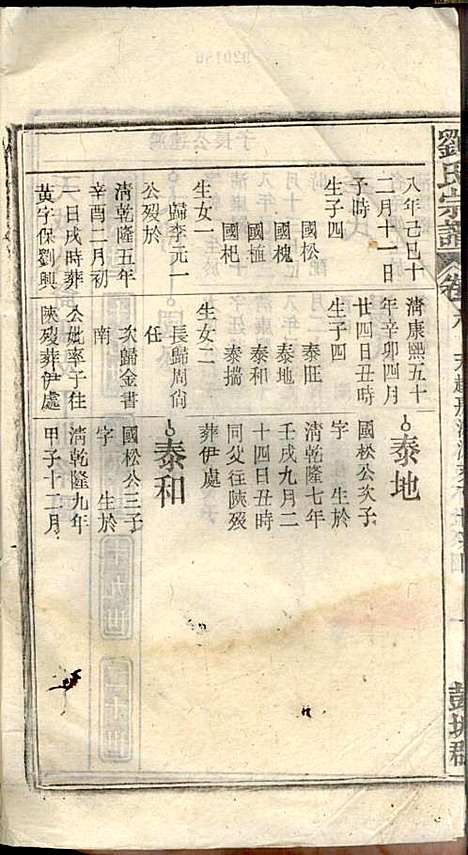 劉氏宗譜
卷
彭城郡
八年己巳十
二月十一日
子時
生子四
國松
國槐
國植
國杞
生女一
歸李元一
公歿於
清乾隆五年
辛酉二月初
一日戌時葬
黃字保劉興
清康熙五十
年辛卯四月
廿四日丑時
生子四
泰旺
泰地
泰和
泰擋
生女二
長歸周尙
任
次歸金書
南
公妣率子往
陝歿葬伊處
泰地
國松公次子
字 生於
清乾隆七年
壬戌九月二
十四日丑時
同父往陝歿
葬伊處
泰和
國松公三子
字 生於
清乾隆九年
甲子十二月